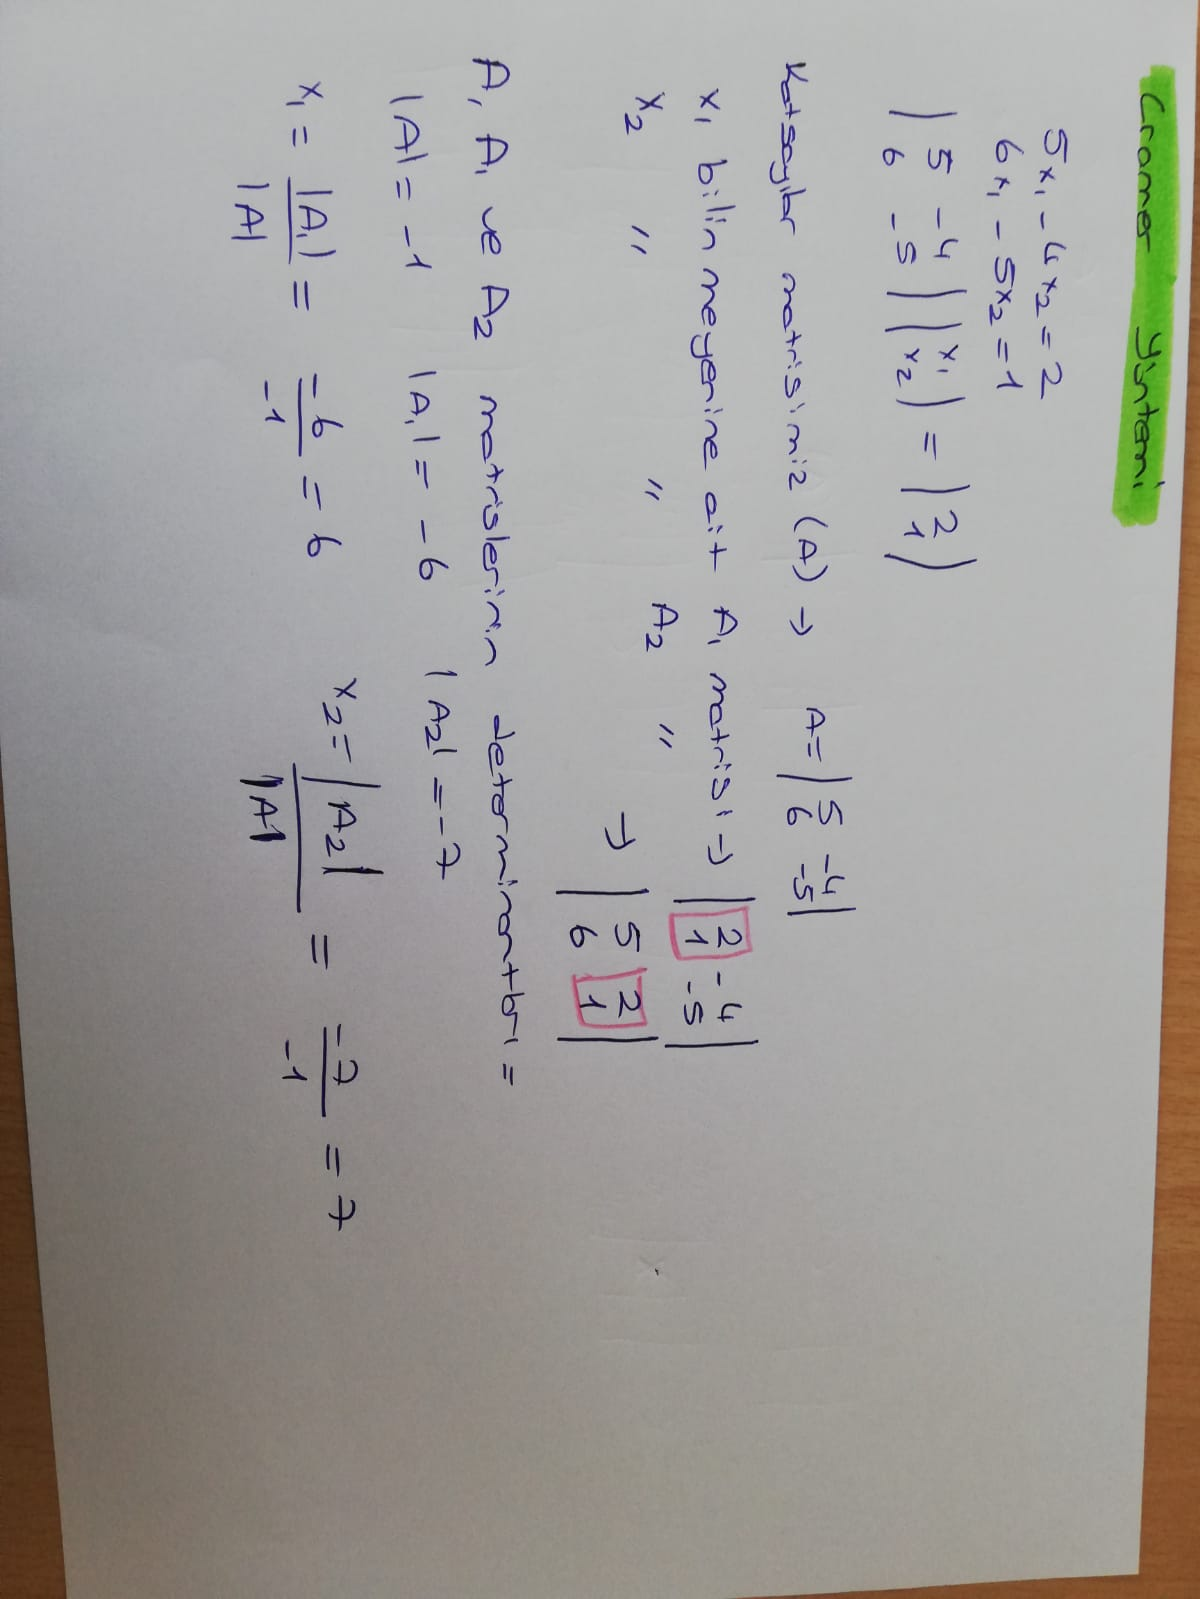 Cramer Yöntemi
5x₁ - 4x₂ = 2
6x₁ - 5x₂ = 1
| 5 -4 | | x₁ | = | 2 |
| 6 -5 | | x₂ | | 1 |
Katsayılar matrisimiz (A) → A = | 5 -4 |
| 6 -5 |
x₁ bilinmeyenine ait A₁ matrisi → | 2 -4 |
| 1 -5 |
x₂ " " A₂ " → | 5 2 |
| 6 1 |
A, A₁ ve A₂ matrislerinin determinantları =
|A| = -1 |A₁| = -6 |A₂| = -7
x₁ = |A₁| / |A| = -6 / -1 = 6 x₂ = |A₂| / |A| = -7 / -1 = 7